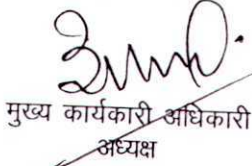 मुख्य कार्यकारी अधिकारी
अध्यक्ष